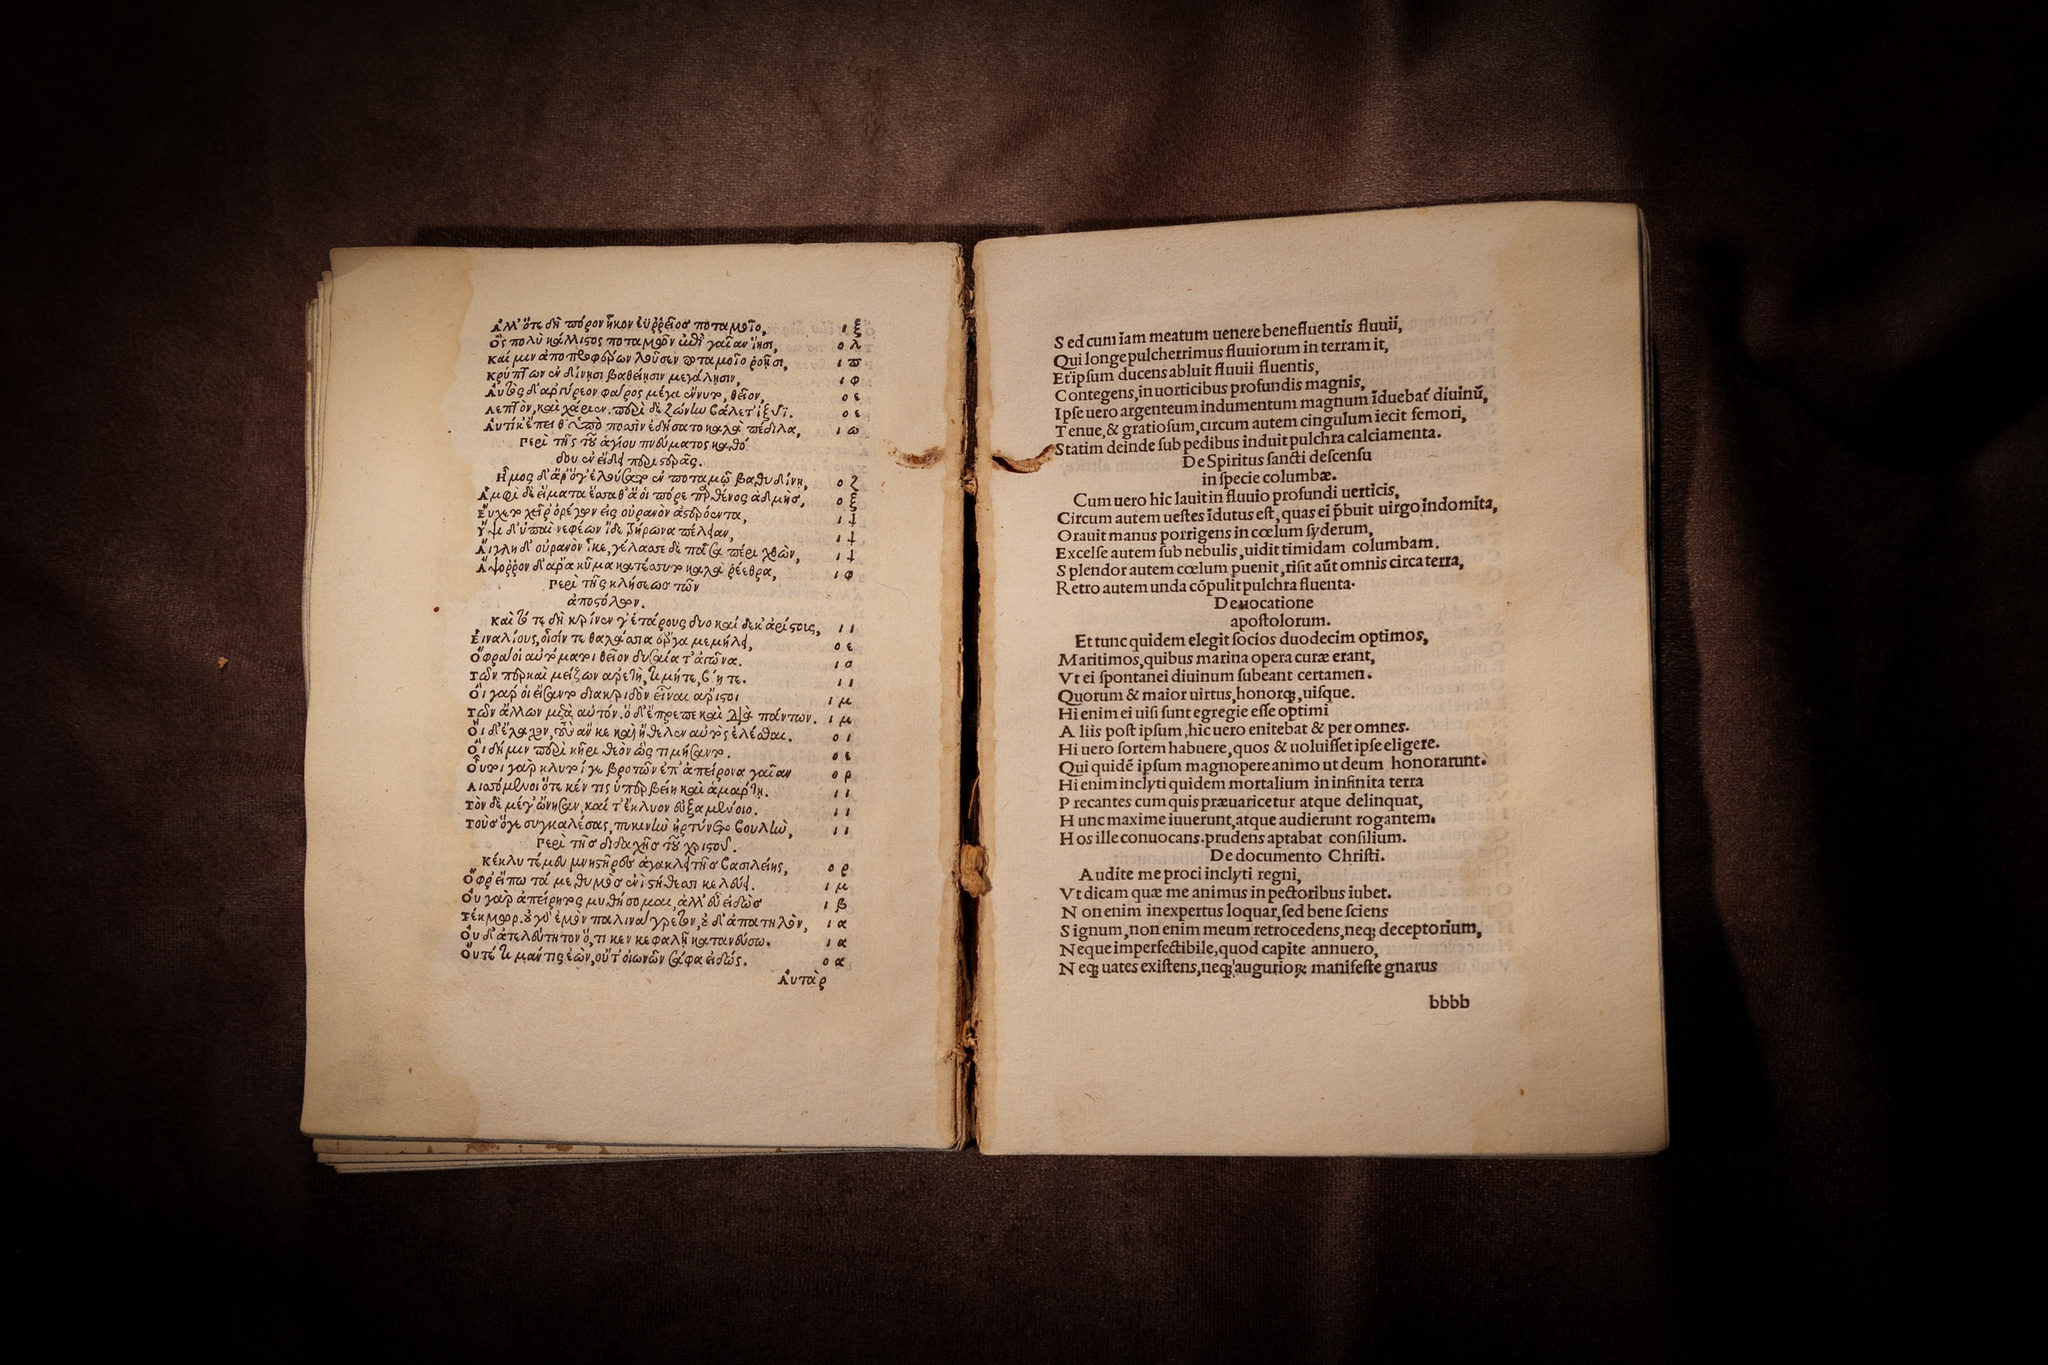 Ἀλλ' ὅτε δὴ πόρον ἷκον ἐϋῤῥεῖος ποταμοῖο, ι ξ
Ὃς πολὺ κάλλιστος ποταμῶν ἐπὶ γαῖαν ἵησι, ο λ
Καί μιν ἀποπροφέρων λοῦσεν ποταμοῖο ῥοῇσι, ι π
Κρύπτων ἐν δίνῃσι βαθείῃσιν μεγάλῃσιν, ι φ
Αὐτὸς δ' ἀργύρεον φᾶρος μέγα ἕννυτο, θεῖον, ο ε
Λεπτὸν, καὶ χάριεν. περὶ δὲ ζώνην βάλετ' ἰξυῖ. ο ε
Αὐτίκ' ἔπειθ' ὑπὸ ποσσὶν ἐδήσατο καλὰ πέδιλα, ι ω
Περὶ τῆς τοῦ ἁγίου πνεύματος καθό
δου ἐν εἴδει περιστερᾶς.
Ἦμος δ' ἄρ' ὅγ' ἐλούσατο ἐν ποταμῷ βαθυδίνῃ, ο ζ
Ἀμφὶ δὲ εἵματα ἕσσαθ' ἅ οἱ πόρε παρθένος ἀδμής, ο ξ
Εὔχετο χεῖρ' ὀρέγων εἰς οὐρανὸν ἀστερόεντα, ι ψ
Ὕψι δ' ὑπαὶ νεφέων ἴδε τρήρωνα πέλειαν, ι ψ
Αἴγλη δ' οὐρανὸν ἷκε, γέλασσε δὲ πᾶσα πέρι χθὼν, ι ψ
Ἄψορρον δ' ἄρα κῦμα κατέσσυτο καλὰ ῥέεθρα, ι φ
Περὶ τῆς κλήσεως τῶν
ἀποστόλων.
Καὶ τότε δὴ κρίνεν γ' ἑτάρους δυοκαίδεκ' ἀρίστους, ι ι
Εἰναλίους, οἷσίν τε θαλάσσια ἔργα μεμήλει, ο ε
Ὄφρα οἱ αὐτόματοι θεῖον δύσαιντ' ἀγῶνα. ι σ
Τῶν περ καὶ μείζων ἀρετὴ, τιμή τε, βίη τε. ι ι
Οἱ γάρ οἱ εἴσαντο διακριδὸν εἶναι ἄριστοι ι μ
Τῶν ἄλλων μετὰ αὐτόν. ὁ δ' ἔπρεπε καὶ διὰ πάντων. ι μ
Οἱ δ' ἔλαχον, τοὺς ἄν κε καὶ ἤθελον αὐτὸς ἑλέσθαι. ο ι
Οἱ δή μιν περὶ κῆρι θεὸν ὣς τιμήσαντο. ο ε
Οὗτοι γὰρ κλυτοί γε βροτῶν ἐπ' ἀπείρονα γαῖαν ο ρ
Λισσόμενοι ὅτε κέν τις ὑπερβείη καὶ ἁμάρτῃ. ι ι
Τὸν δὲ μέγ' ὤνησαν, καί τ' ἔκλυον εὐξαμένοιο. ι ι
Τοὺς ὅγε συγκαλέσας, πυκινὴν ἠρτύνετο βουλὴν, ι ι
Περὶ τῆς διδαχῆς τοῦ χριστοῦ.
Κέκλυτέ μευ μνηστῆρες ἀγακλειτῆς βασιλείης, ο ρ
Ὄφρ' εἴπω τά με θυμὸς ἐνὶ στήθεσσι κελεύει. ι μ
Οὐ γὰρ ἀπείρητος μυθήσομαι, ἀλλ' εὖ εἰδὼς ι β
Τέκμωρ. οὐ γὰρ ἐμὸν παλινάγρετον, οὐδ' ἀπατηλὸν, ι α
Οὐδ' ἀτελεύτητον ὅ, τι κεν κεφαλῇ κατανεύσω. ι α
Οὔτέ τι μάντις ἐὼν, οὔτ' οἰωνῶν σάφα εἰδώς. ο α
Αὐτὰρ
Sed cum iam meatum uenere benefluentis fluuii,
Qui longe pulcherrimus fluuiorum in terram it,
Et ipsum ducens abluit fluuii fluentis,
Contegens, in uorticibus profundis magnis,
Ipse uero argenteum indumentum magnum īduebat diuinū,
Tenue, & gratiosum, circum autem cingulum iecit femori,
Statim deinde sub pedibus induit pulchra calciamenta.
De Spiritus sancti descensu
in specie columbæ.
Cum uero hic lauit in fluuio profundi uerticis,
Circum autem uestes īdutus est, quas ei p̄buit uirgo indomita,
Orauit manus porrigens in cœlum syderum,
Excelse autem sub nebulis, uidit timidam columbam.
Splendor autem cœlum puenit, risit aūt omnis circa terra,
Retro autem unda cōpulit pulchra fluenta.
De uocatione
apostolorum.
Et tunc quidem elegit socios duodecim optimos,
Maritimos, quibus marina opera curæ erant,
Vt ei spontanei diuinum subeant certamen.
Quorum & maior uirtus, honorq;, uisque.
Hi enim ei uisi sunt egregie esse optimi
Aliis post ipsum, hic uero enitebat & per omnes.
Hi uero sortem habuere, quos & uoluisset ipse eligere.
Qui quidē ipsum magnopere animo ut deum honorarunt.
Hi enim inclyti quidem mortalium in infinita terra
Precantes cum quis præuaricetur atque delinquat,
Hunc maxime iuuerunt, atque audierunt rogantem.
Hos ille conuocans. prudens aptabat consilium.
De documento Christi.
Audite me proci inclyti regni,
Vt dicam quæ me animus in pectoribus iubet.
Non enim inexpertus loquar, sed bene sciens
Signum, non enim meum retrocedens, neq; deceptorium,
Neque imperfectibile, quod capite annuero,
Neq; uates existens, neq; auguriorꝝ manifeste gnarus
bbbb